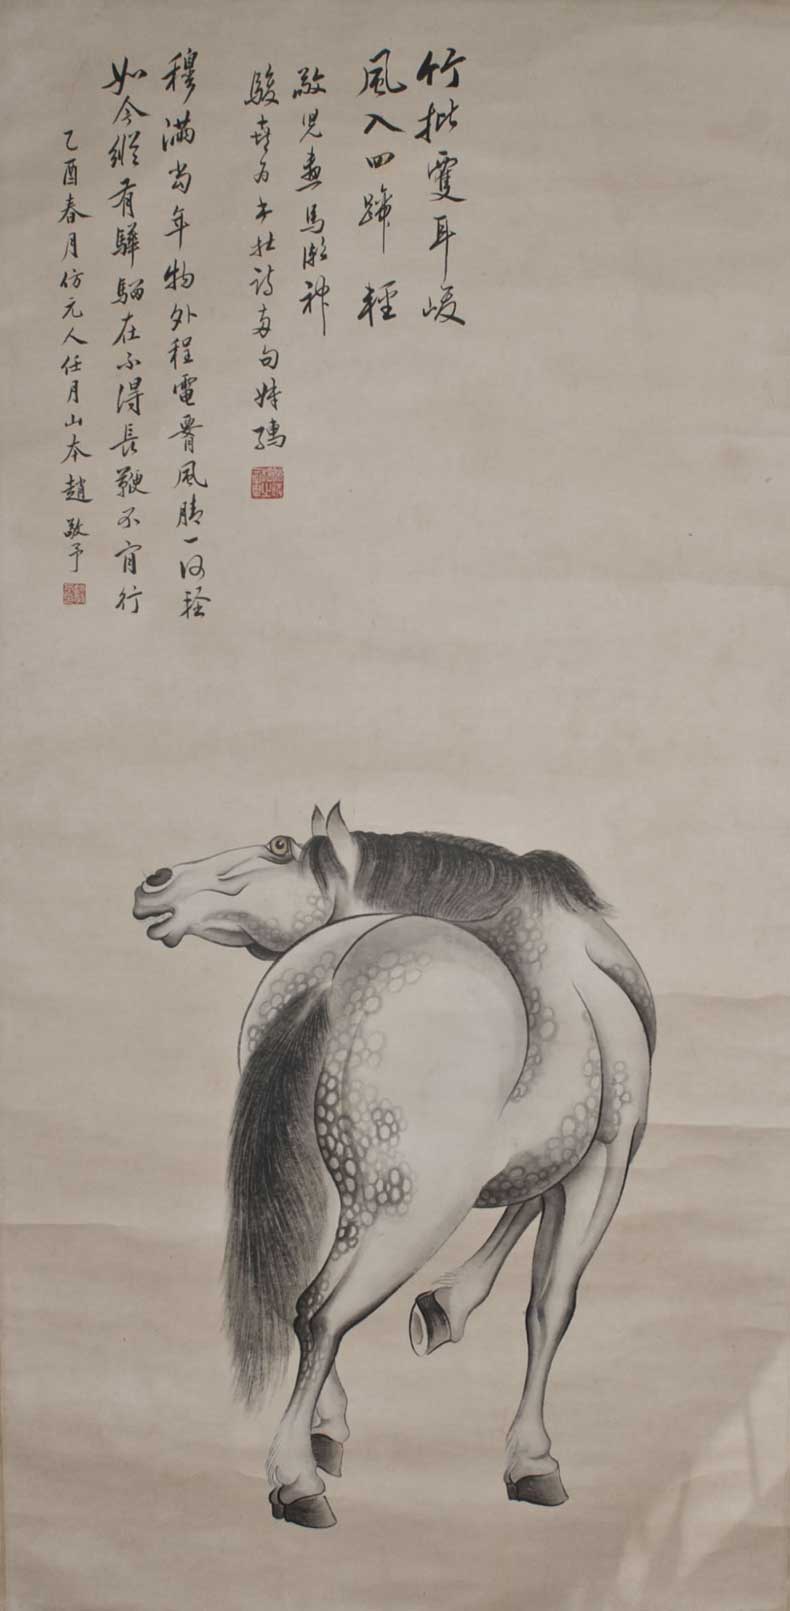 竹批雙耳峻
風入四蹄輕
敬児畫馬漸神
駿喜为書杜詩兩句叔孺
穆滿當年物外程電腰風腳一何輕
如今縱有驊騮在不得長鞭不肯行
乙酉春月仿元人任月山本趙敬予